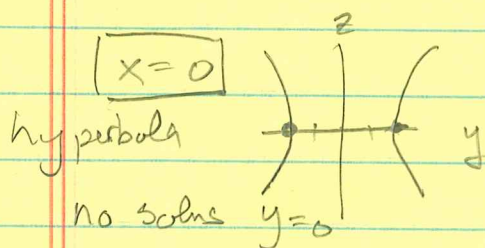 z
x = 0
hyperbola
y
no solns y=0